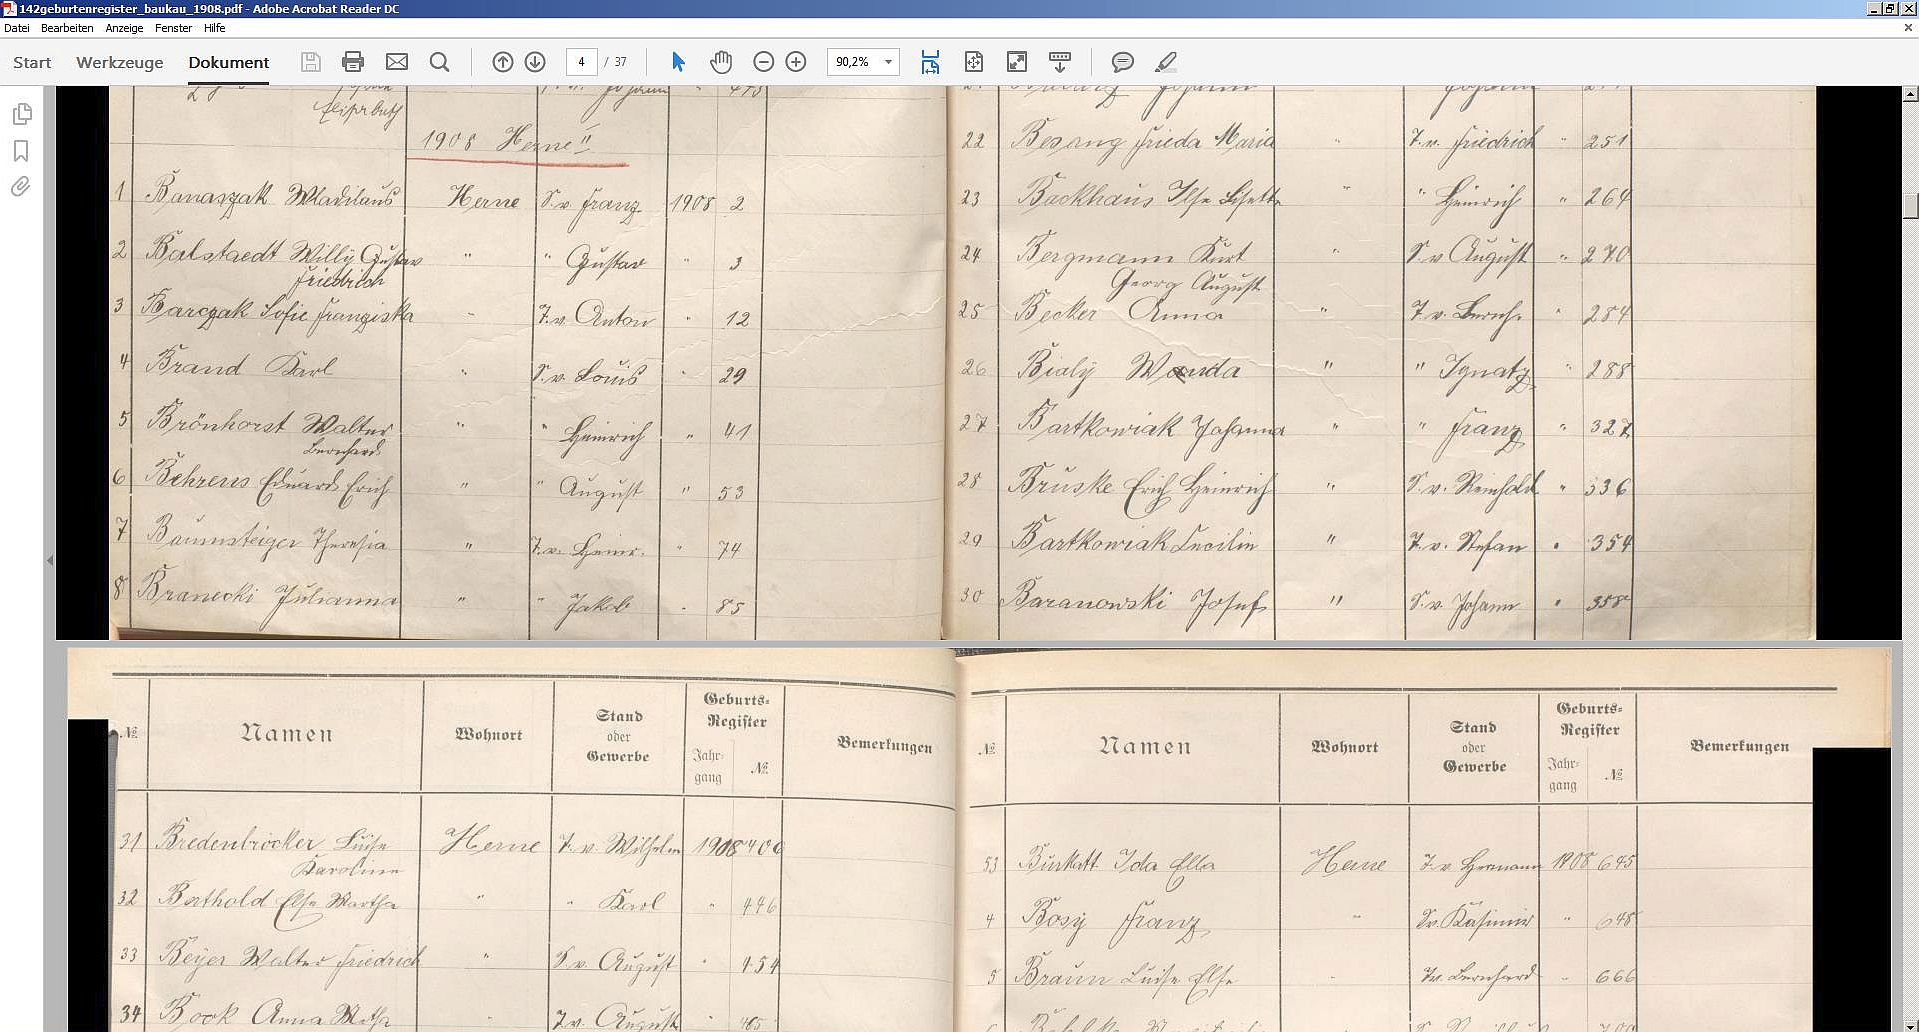 142geburtenregister_baukau_1908.pdf - Adobe Acrobat Reader DC
Datei Bearbeiten Anzeige Fenster Hilfe
Start Werkzeuge Dokument 4 / 37 90,2%
Elisabeth
1908 Herne II
1 Banaszak Wladislaus Herne S. v. Franz 1908 2
2 Balstaedt Willy Gustav " " Gustav " 3
Friedrich
3 Barczak Sofie Franziska " T. v. Anton " 12
4 Brand Karl " S. v. Louis " 29
5 Brönhorst Walter " " Heinrich " 41
Bernhard
6 Behrens Eduard Erich " " August " 53
7 Baumsteiger Theresia " T. v. Heinr. " 74
8 Branecki Julianna " " Jakob " 85
22 Besang Frieda Maria " T. v. Friedrich " 251
23 Backhaus Ilse Lisette " " Heinrich " 264
24 Bergmann Kurt " S. v. August " 270
Georg August
25 Becker Anna " T. v. Bernh. " 284
26 Bialy Wanda " " Ignatz " 288
27 Bartkowiak Johanna " " Franz " 327
28 Bruske Erich Heinrich " S. v. Reinhold " 336
29 Bartkowiak Cecilie " T. v. Stefan " 354
30 Baranowski Josef " S. v. Johann " 358
№ Namen Wohnort Stand oder Gewerbe Geburts-Register Bemerkungen
Jahrgang №
31 Bredenbröcker Luise Herne T. v. Wilhelm 1908 406
Karoline
32 Barthold Else Martha " " Karl " 446
33 Beyer Walter Friedrich " S. v. August " 454
34 Book Anna " T. v. August " 465
№ Namen Wohnort Stand oder Gewerbe Geburts-Register Bemerkungen
Jahrgang №
53 Burkatt Ida Ella Herne T. v. Hermann 1908 645
4 Bosy Franz " S. v. Kasimir " 648
5 Braun Luise Else " T. v. Bernhard " 666